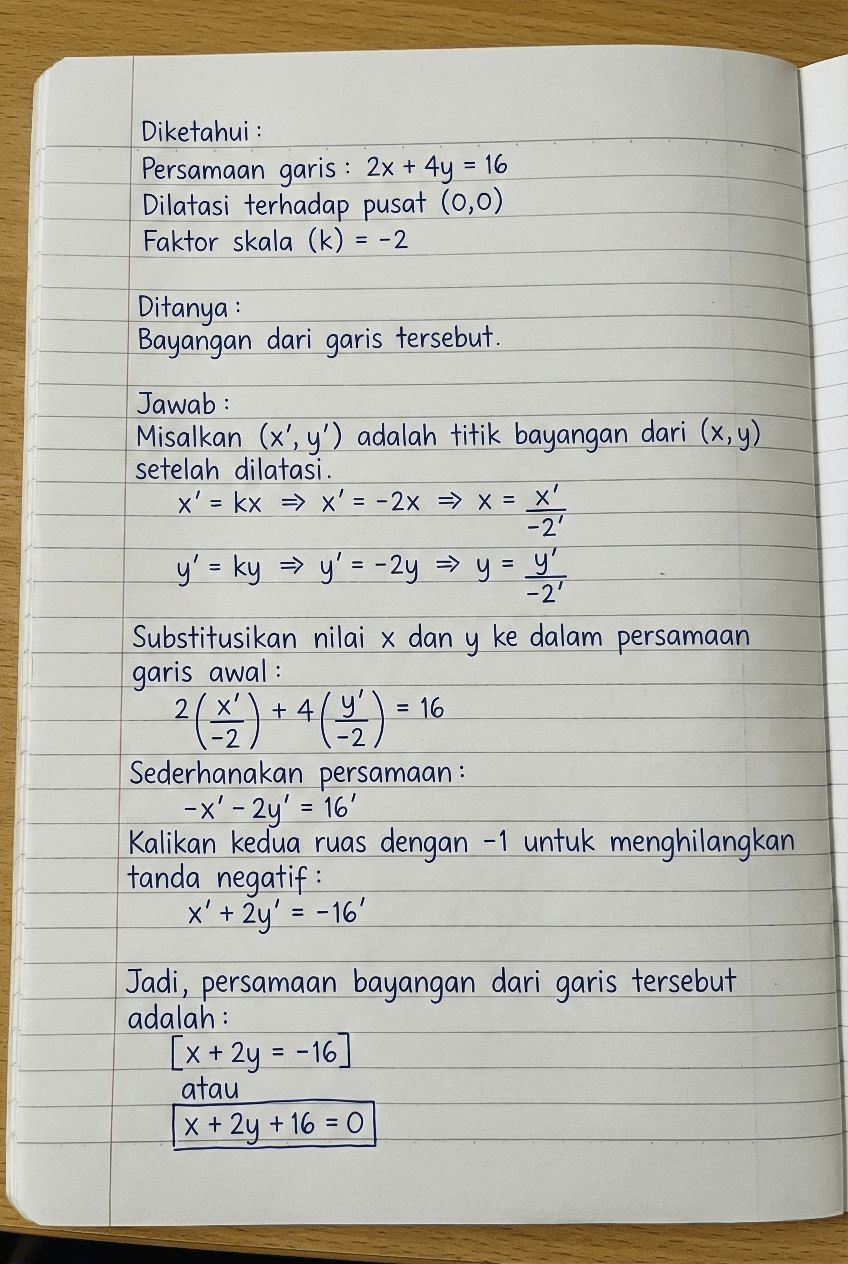 Diketahui :
Persamaan garis : 2x + 4y = 16
Dilatasi terhadap pusat (0,0)
Faktor skala (k) = -2
Ditanya :
Bayangan dari garis tersebut.
Jawab :
Misalkan (x', y') adalah titik bayangan dari (x, y)
setelah dilatasi.
x' = kx ⇒ x' = -2x ⇒ x = x'/-2'
y' = ky ⇒ y' = -2y ⇒ y = y'/-2'
Substitusikan nilai x dan y ke dalam persamaan
garis awal :
2(x'/-2) + 4(y'/-2) = 16
Sederhanakan persamaan :
-x' - 2y' = 16'
Kalikan kedua ruas dengan -1 untuk menghilangkan
tanda negatif :
x' + 2y' = -16'
Jadi, persamaan bayangan dari garis tersebut
adalah :
[x + 2y = -16]
atau
x + 2y + 16 = 0